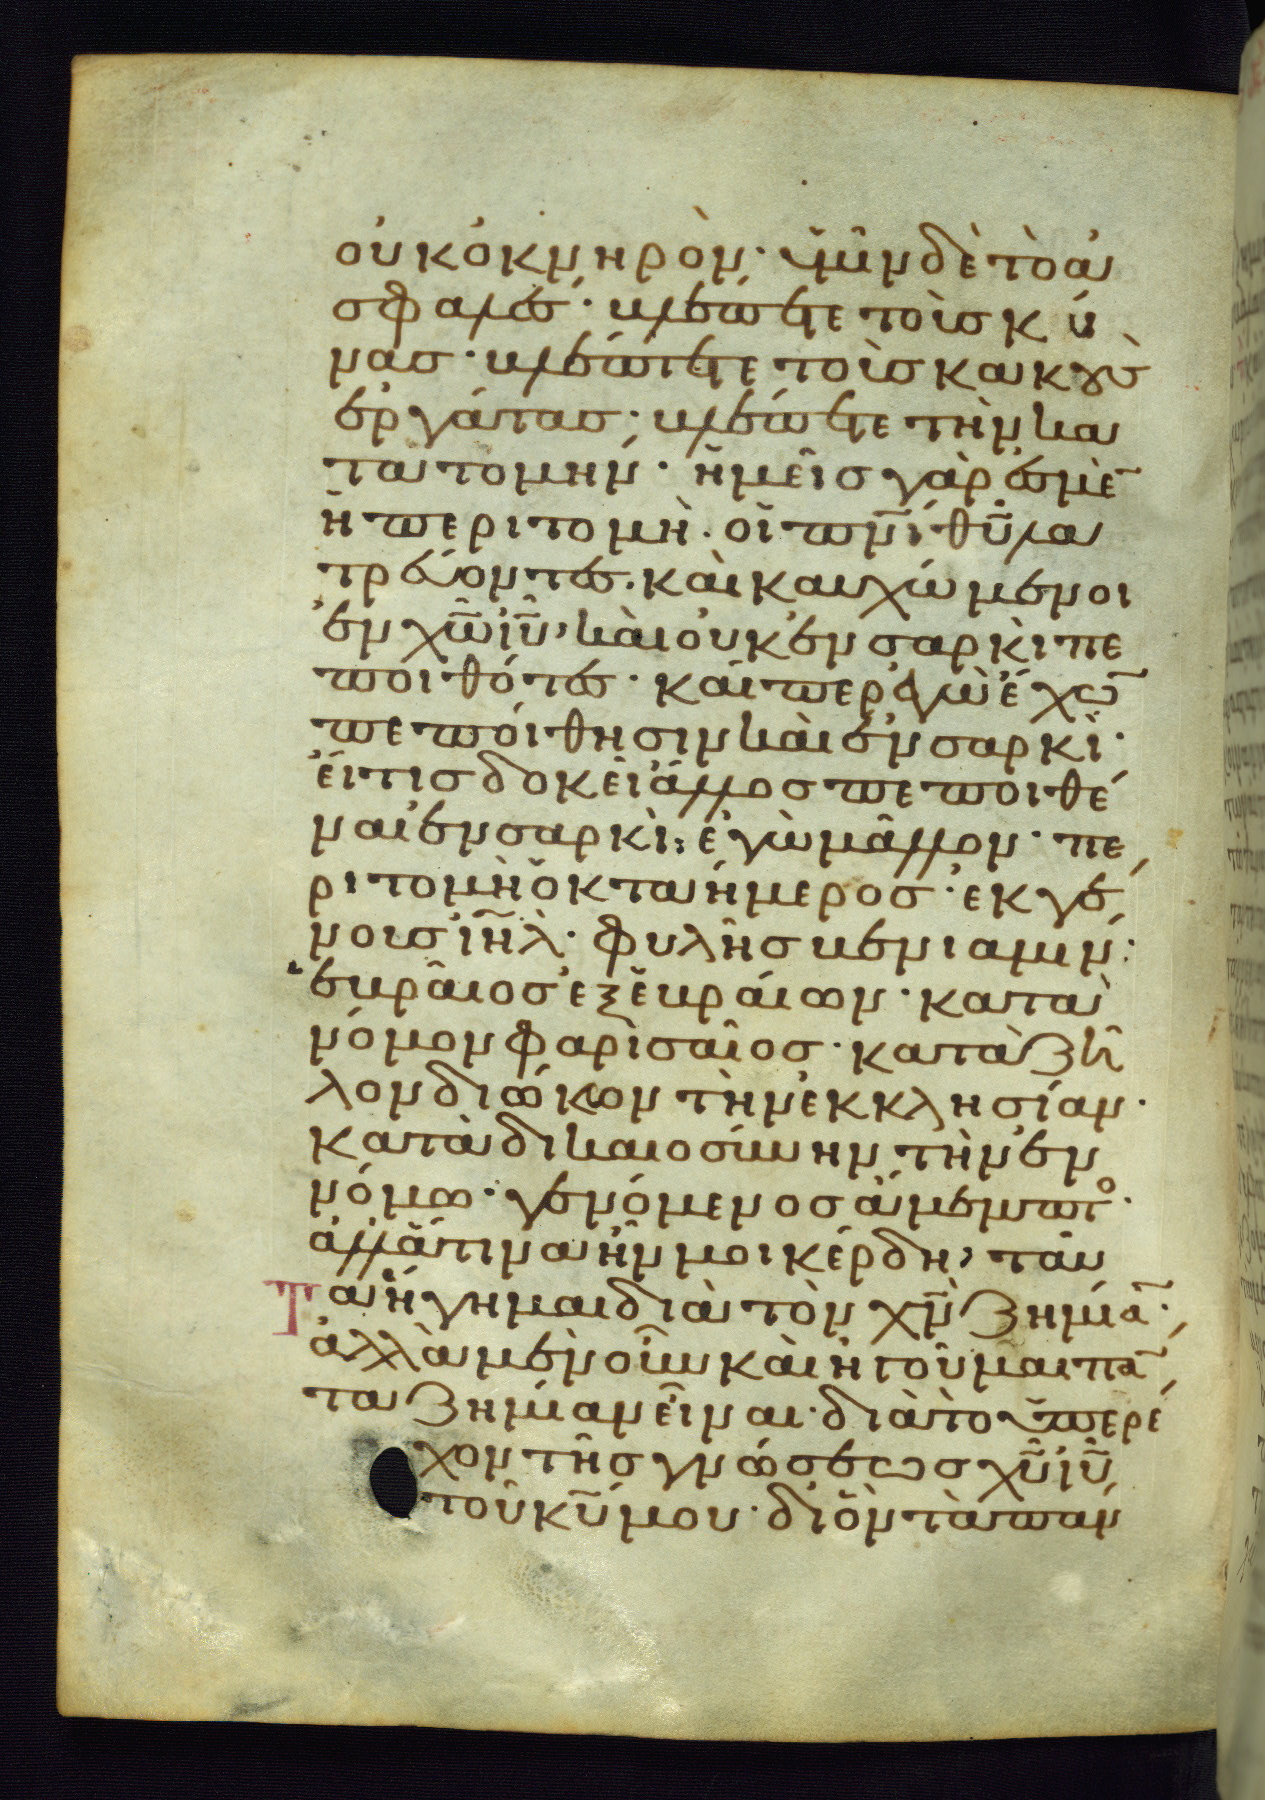 οὐκ ὀκνηρὸν· ὑμῖν δὲ τὸ ἀ
σφαλές· βλέπετε τοὺς κύ
νας· βλέπετε τοὺς κακοὺς
ἐργάτας· βλέπετε τὴν κα
τατομήν· ἡμεῖς γάρ ἐσμὲ̅
ἡ περιτομὴ. οἱ π̅ν̅ι θ̅υ̅ λα
τρεύοντες. καὶ καυχώμενοι
ἐν χ̅ω̅ ι̅υ̅, καὶ οὐκ ἐν σαρκὶ πε
ποιθότες· καίπερ ἐγὼ ἔχω̅
πεποίθησιν καὶ ἐν σαρκὶ·
εἴ τις δοκεῖ ἄλλος πεποιθέ
ναι ἐν σαρκὶ: ἐγὼ μᾶλλον· πε
ριτομὴ ὀκταήμερος· ἐκ γέ
νους ι̅η̅λ̅· φυλῆς βενιαμιν:
ἑβραῖος ἐξ ἑβραίων· κατὰ
νόμον φαρισαῖος· κατὰ ζῆ
λον διώκων τὴν ἐκκλησίαν·
κατὰ δικαιοσύνην τὴν ἐν
νόμω· γενόμενος ἄμεμπτο·
ἀλλ' ἅτινα ἦν μοι κέρδη, ταῦ
τα ἥγημαι διὰ τὸν χ̅ν̅ ζημία̅·
ἀλλὰ μὲν οὖν καὶ ἡγοῦμαι πά̅
τα ζημίαν εἶναι· διὰ το ὑπερέ
χον τῆς γνώσεως χ̅υ̅ ι̅υ̅
τοῦ κ̅υ̅ μου· δι ὃν τὰ παν